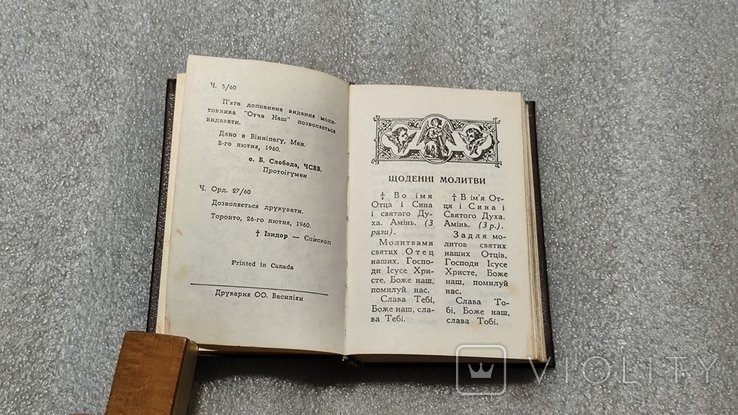 Ч. 5/60
П'яте доповнене видання моли-
товника "Отче Наш" позволяється
видавати.
Дано в Вінніпегу, Ман.
2-го лютня, 1960.
о. Б. Слобода, ЧСВВ.
Протоігумен
Ч. Орд. 27/60
Дозволяється друкувати.
Торонто, 26-го лютня, 1960.
† Ізидор — Єпископ
Printed in Canada
Друкарня ОО. Василіян
ЩОДЕННІ МОЛИТВИ
† Во імя
Отца і Сина
і святаго Ду-
ха. Амінь. (3
рази).
Молитвами
святих Отец
наших, Госпо-
ди Ісусе Хри-
сте, Боже наш,
помилуй нас.
Слава Тебі,
Боже наш, сла-
ва Тебі.
† В ім'я От-
ця і Сина і
Святого Духа.
Амінь. (3 р.).
Задля мо-
литов святих
наших Отців,
Господи Ісусе
Христе, Боже
наш, помилуй
нас.
Слава То-
бі, Боже наш,
слава Тобі.
VIOLITY